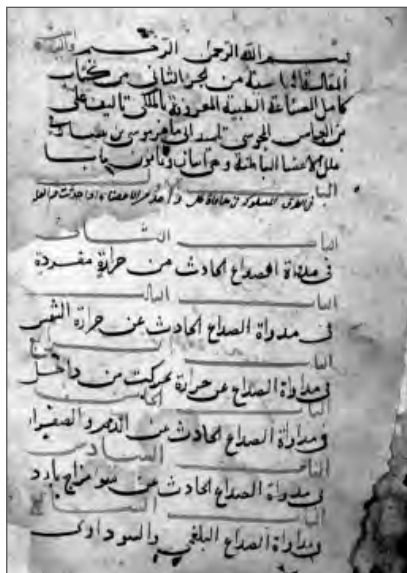 بسم الله الرحمن الرحيم
المقالة من الجزء الثاني من كتاب
كامل الصناعة الطبية المعروف بالملكي تاليف علي
بن العباس المجوسي تلميذ ابي ماهر موسى بن
علل الاعضا الباطنة و بابا
الباب
في
الباب الثانى
فى مداواة الصداع الحادث من حرارة مفردة
الباب الثالث
فى مداواة الصداع الحادث عن حرارة الشمس
الباب الرابع
فى مداواة الصداع عن حرارة تحركت من داخل
الباب الخامس
فى مداواة الصداع الحادث عن الدم والصفراء
الباب السادس
فى مداواة الصداع الحادث عن سو مزاج بارد
الباب
فى مداواة الصداع البلغمي والسوداوى